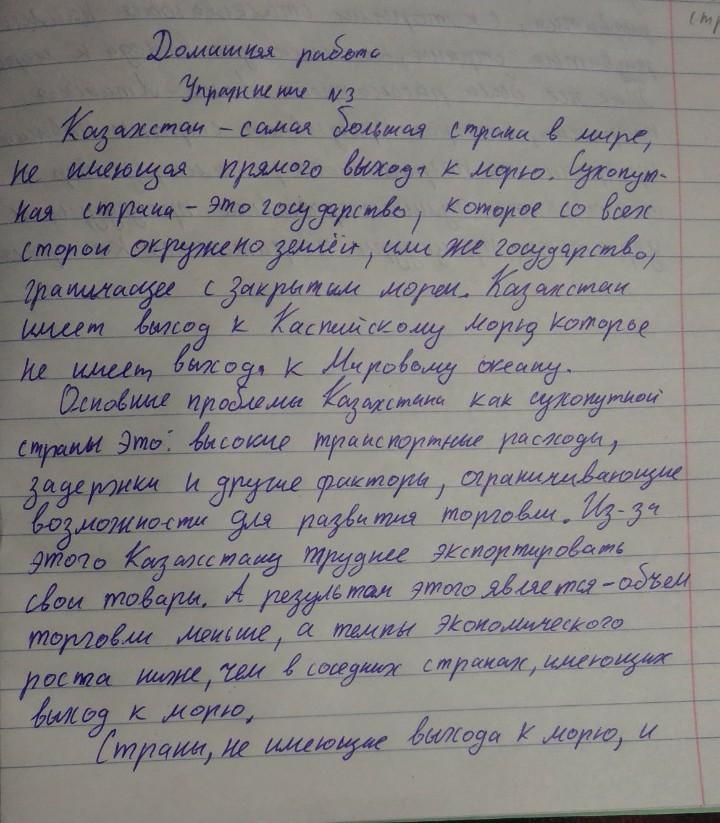 стр
Домашняя работа
Упражнение №3
Казахстан – самая большая страна в мире,
не имеющая прямого выхода к морю. Сухопут-
ная страна – это государство, которое со всех
сторон окружено землёй, или же государство,
граничащее с закрытым морем. Казахстан
имеет выход к Каспийскому морю, которье
не имеет выхода к Мировому океану.
Основные проблемы Казахстана как сухопутной
страны это: высокие транспортные расходы,
задержки и другие факторы, ограничивающие
возможности для развития торговли. Из-за
этого Казахстану труднее экспортировать
свои товары. А результатом этого является – объем
торговли меньше, а темпы экономического
роста ниже, чем в соседних странах, имеющих
выход к морю.
Страны, не имеющие выхода к морю, и